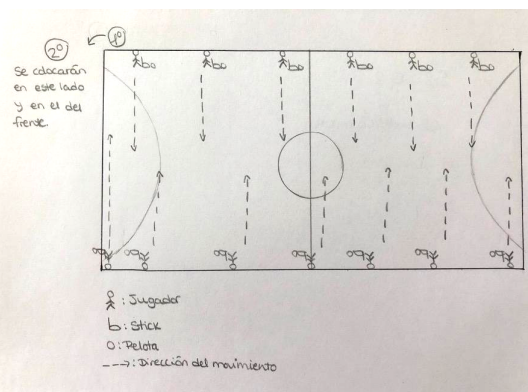 1º
2º
Se colocarán
en este lado
y en el del
frente.
: Jugador
b: Stick
O: Pelota
---->: Dirección del movimiento